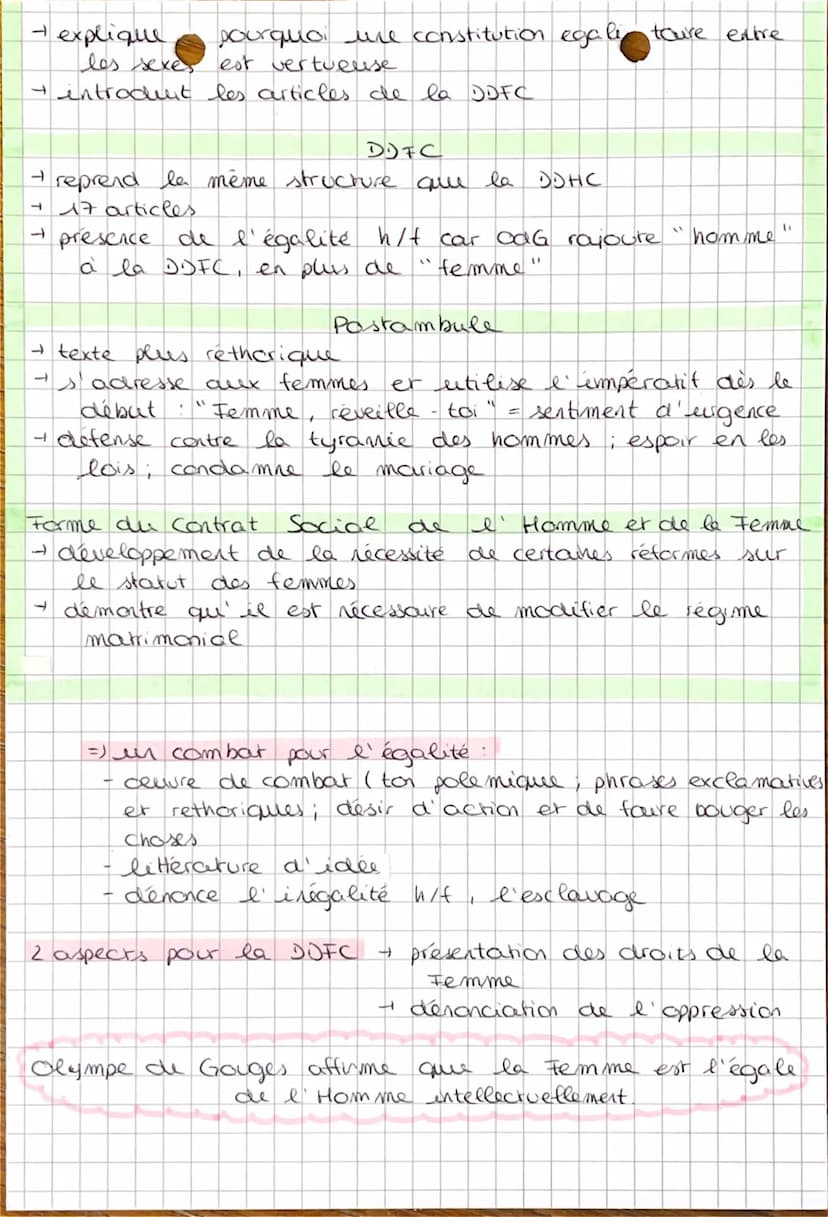 → explique pourquoi une constitution egalitaire entre
les sexes est vertueuse
→ introduit les articles de la DDFC
DDFC
→ reprend la même structure que la DDHC
→ 17 articles
→ présence de l'égalité h/f car OdG rajoute "homme"
à la DDFC, en plus de "femme"
Postambule
→ texte plus réthorique
→ s'adresse aux femmes et utilise l'impératif dès le
début : "Femme, réveille-toi" = sentiment d'urgence
→ défense contre la tyrannie des hommes ; espoir en les
lois ; condamne le mariage
Forme du Contrat Social de l'Homme et de la Femme
→ développement de la nécessité de certaines réformes sur
le statut des femmes
→ démontre qu'il est nécessaire de modifier le régime
matrimonial
=> un combat pour l'égalité :
- œuvre de combat (ton polémique ; phrases exclamatives
et rethoriques ; désir d'action et de faire bouger les
choses
- littérature d'idée
- dénonce l'inégalité h/f, l'esclavage
2 aspects pour la DDFC → présentation des droits de la
Femme
→ dénonciation de l'oppression
Olympe de Gouges affirme que la Femme est l'égale
de l'Homme intellectuellement.